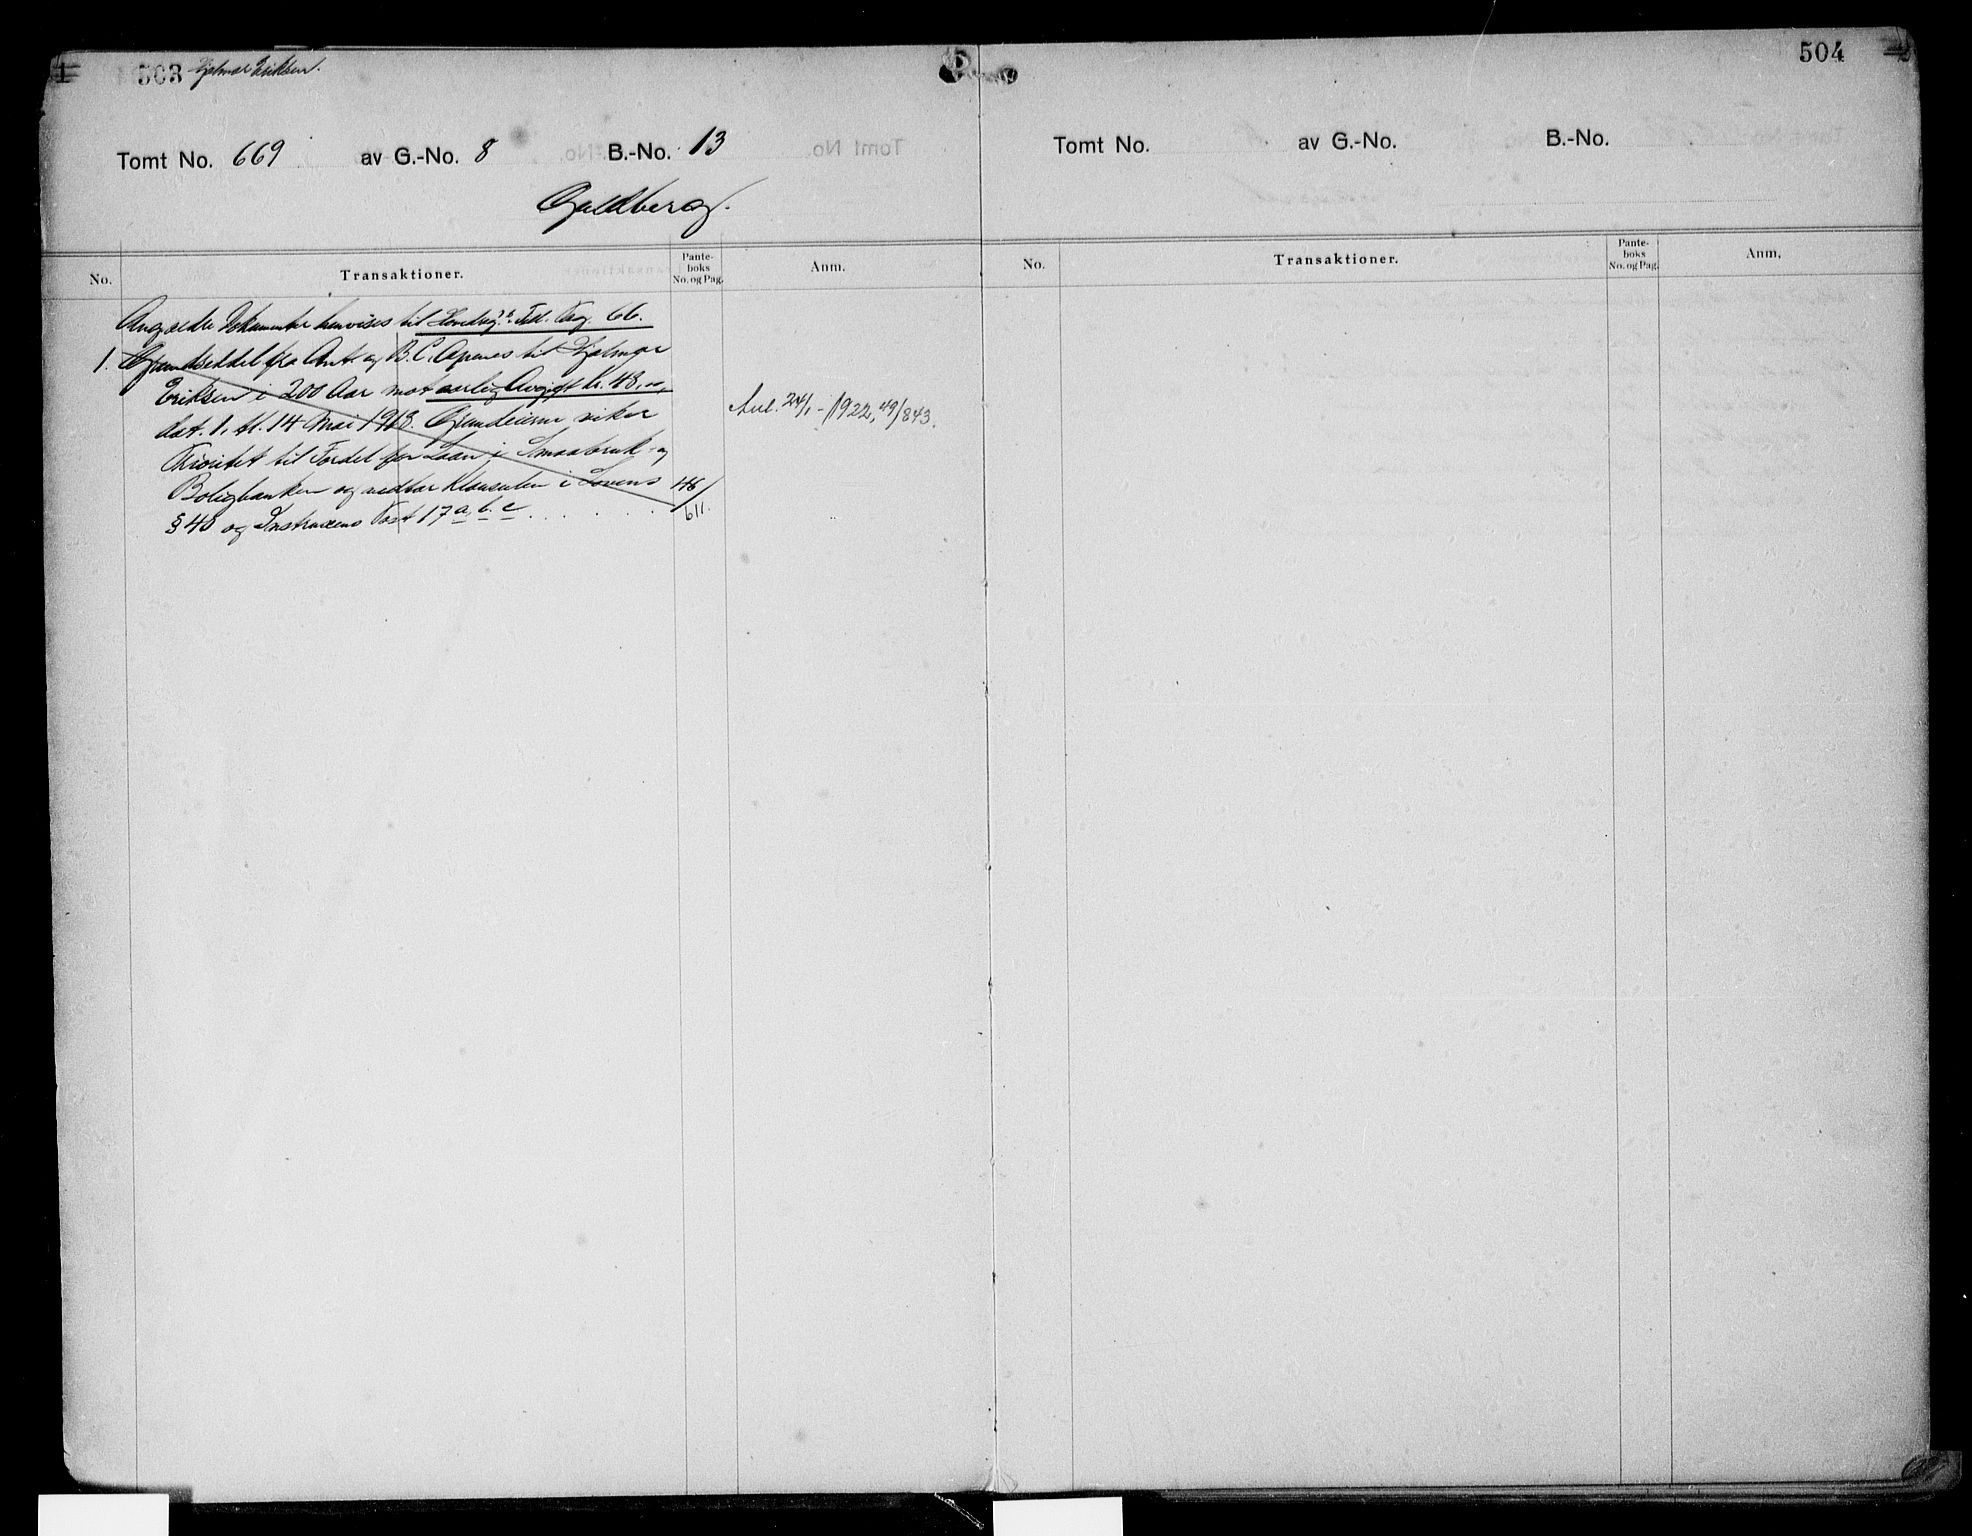 503 Hjalmar Eriksen.
Tomt No. 669 av G.-No. 8 B.-No. 13
Gjeldberg.
No. Transaktioner. Pante-boks No. og Pag. Anm.
Angaaende Dokumenter henvises til Fol. Pag. 66.
1. Grundseddel fra Ant. og B. C. Apenes til Hjalmar
Eriksen i 200 Aar mot aarlig Avgift kr. 48,00,
dat. 1, tl. 14 Mai 1918. Grundeieren viker
Prioritet til Fordel for Laan i Smaabruk- og
Boligbanken og vedtar Klausulen i Lovens 46/
§ 40 og Instruxens Post 17 a, b. c . . . . . . 611.
Avl. 24/1 - 1922, 49/843.
504
Tomt No. av G.-No. B.-No.
No. Transaktioner. Pante-boks No. og Pag. Anm.